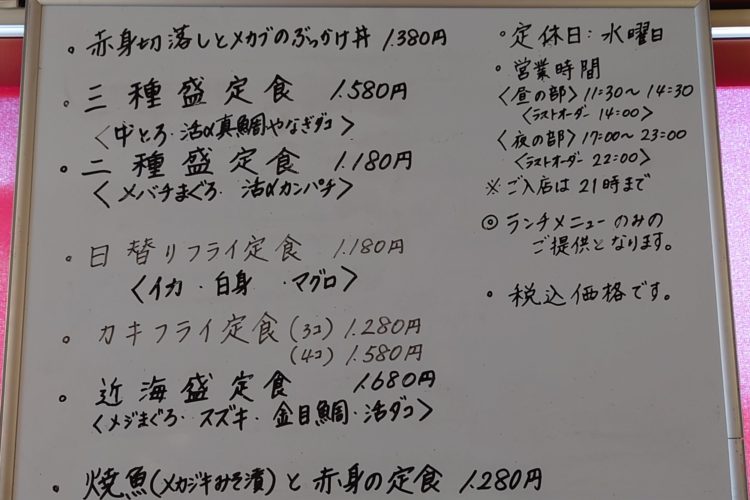 ・赤身切落しとメカブのぶっかけ丼 1.380円
・三種盛定食 1.580円
〈中とろ・活〆真鯛やなぎダコ〉
・二種盛定食 1.180円
〈メバチまぐろ・活〆カンパチ〉
・日替りフライ定食 1.180円
〈イカ・白身・マグロ〉
・カキフライ定食(3コ) 1.280円
(4コ) 1.580円
・近海盛定食 1.680円
〈メジまぐろ・スズキ・金目鯛・活ダコ〉
・焼魚(メカジキみそ漬)と赤身の定食 1.280円
・定休日:水曜日
・営業時間
〈昼の部〉11:30〜14:30
〈ラストオーダー 14:00〉
〈夜の部〉17:00〜23:00
〈ラストオーダー 22:00〉
※ご入店は21時まで
◎ランチメニューのみの
ご提供となります。
・税込価格です。